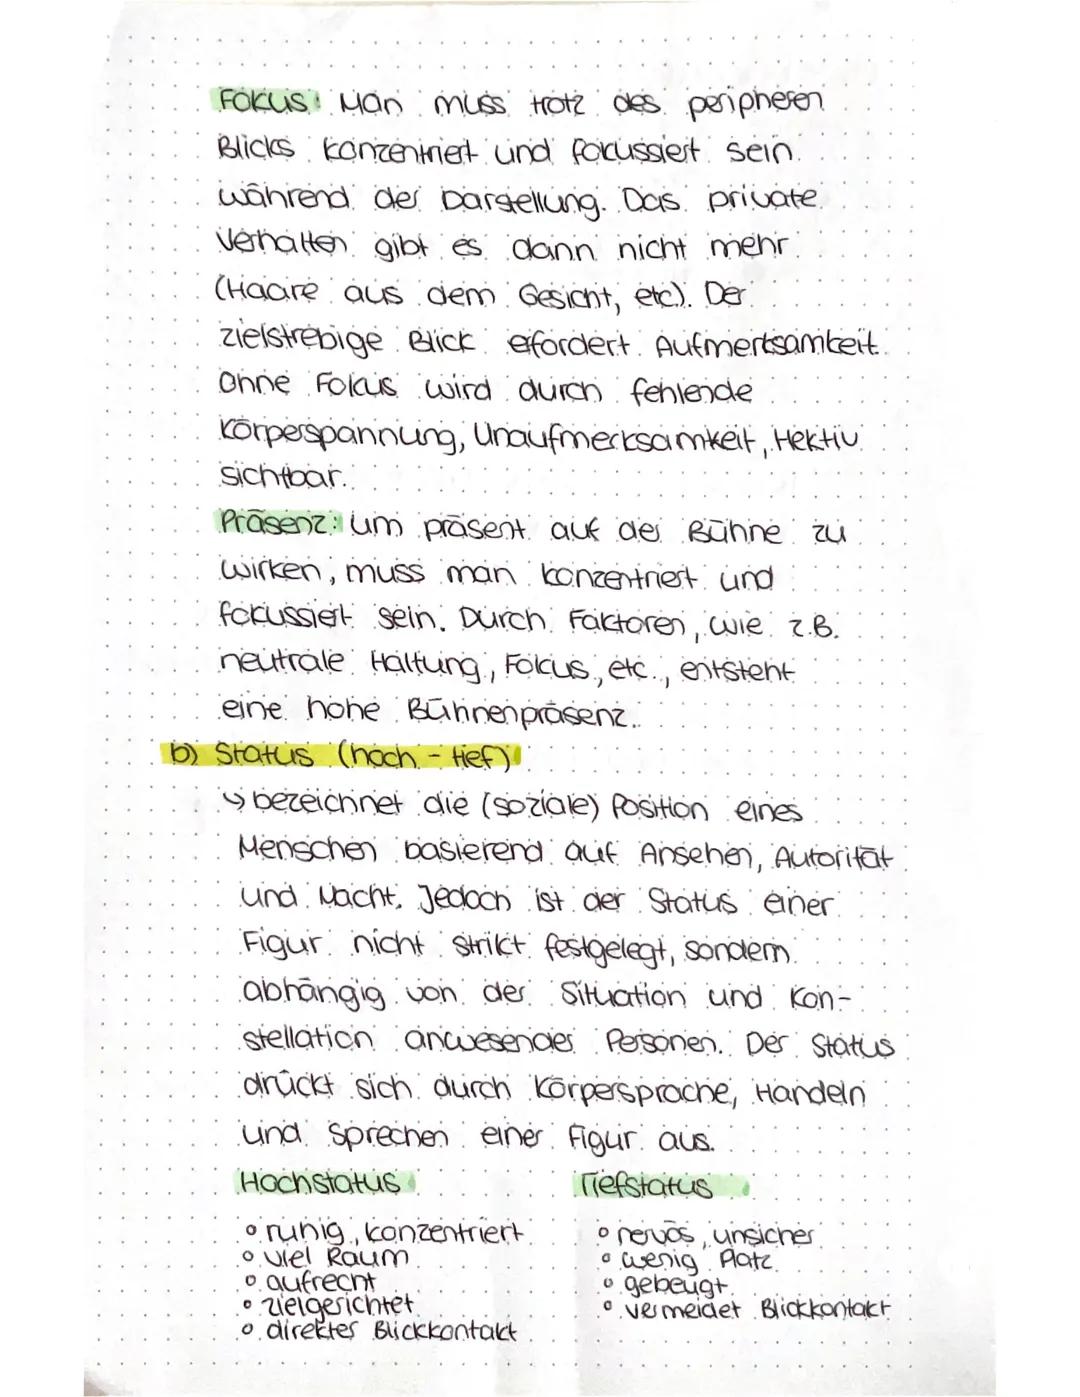 Fokus: Man muss trotz des peripheren
Blicks konzentriert und fokussiert sein
während der Darstellung. Das private
Verhalten gibt es dann nicht mehr
(Haare aus dem Gesicht, etc). Der
zielstrebige Blick erfordert Aufmerksamkeit.
Ohne Fokus wird durch fehlende
Körperspannung, Unaufmerksamkeit, Hektiv
sichtbar.
Präsenz: um präsent auf der Bühne zu
wirken, muss man konzentriert und
fokussiert sein. Durch Faktoren, wie z.B.
neutrale Haltung, Fokus, etc., entsteht
eine hohe Bühnenpräsenz.
b) Status (hoch - tief)
↳ bezeichnet die (soziale) Position eines
Menschen basierend auf Ansehen, Autorität
und Macht. Jedoch ist der Status einer
Figur nicht strikt festgelegt, sondern
abhängig von der Situation und Kon-
stellation anwesender Personen. Der Status
drückt sich durch Körpersprache, Handeln
und Sprechen einer Figur aus.
Hochstatus Tiefstatus
° ruhig, konzentriert ° nervös, unsicher
° viel Raum ° wenig Platz
° aufrecht ° gebeugt
° zielgerichtet ° vermeidet Blickkontakt
° direkter Blickkontakt